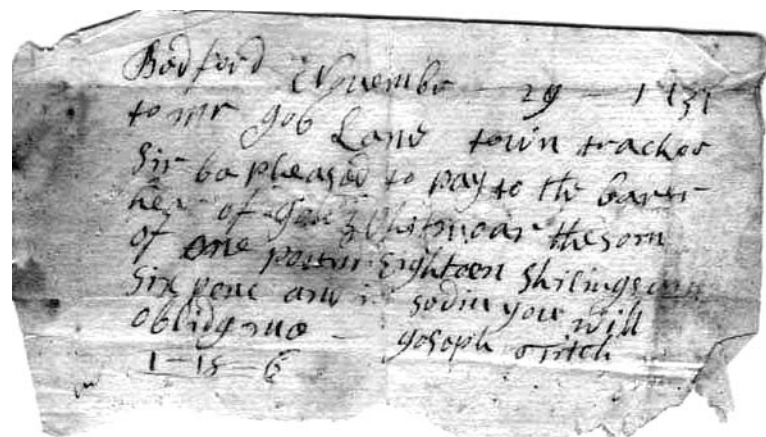 Bedford Novembr - 29 - 1737
to mr Job Lane town tracher
Sir be pleased to pay to the barer
her of Gabez Whitmoar the som
of one poun Eighteen Shilings and
Six penc and in sodiu you will
oblidg me - Joseph Fitch
1-18-6